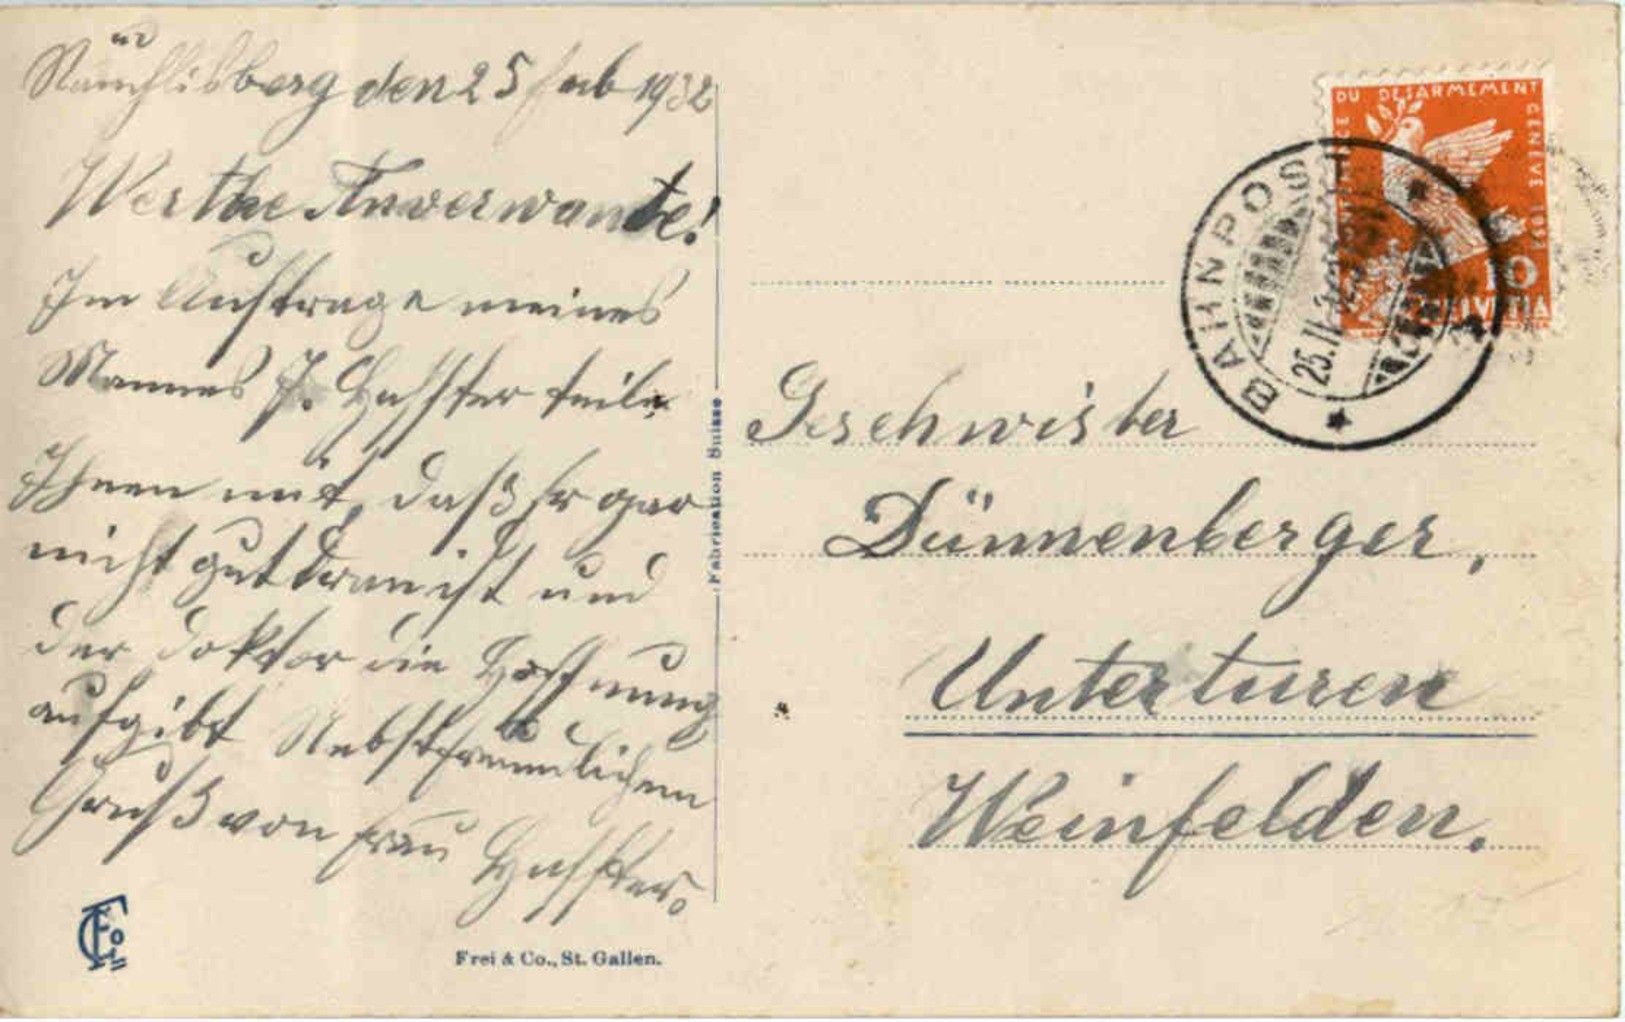 Räuchlisberg den 25 Feb 1932
Werthe Anverwante!
Im Auftrage meines
Mannes J. Haffter teile
Ihnen mit, daß Er gar
nicht gut dran ist und
der Doktor die Hoffnung
aufgibt Nebst freundlichen
Gruß von Frau Haffter.
Frei & Co., St. Gallen.
Fabrication Suisse
DU DESARMEMENT
GENEVE 1932
10
HELVETIA
BAHNPOST
25.II.
Geschwister
Dünnenberger,
Unterturen
Weinfelden.